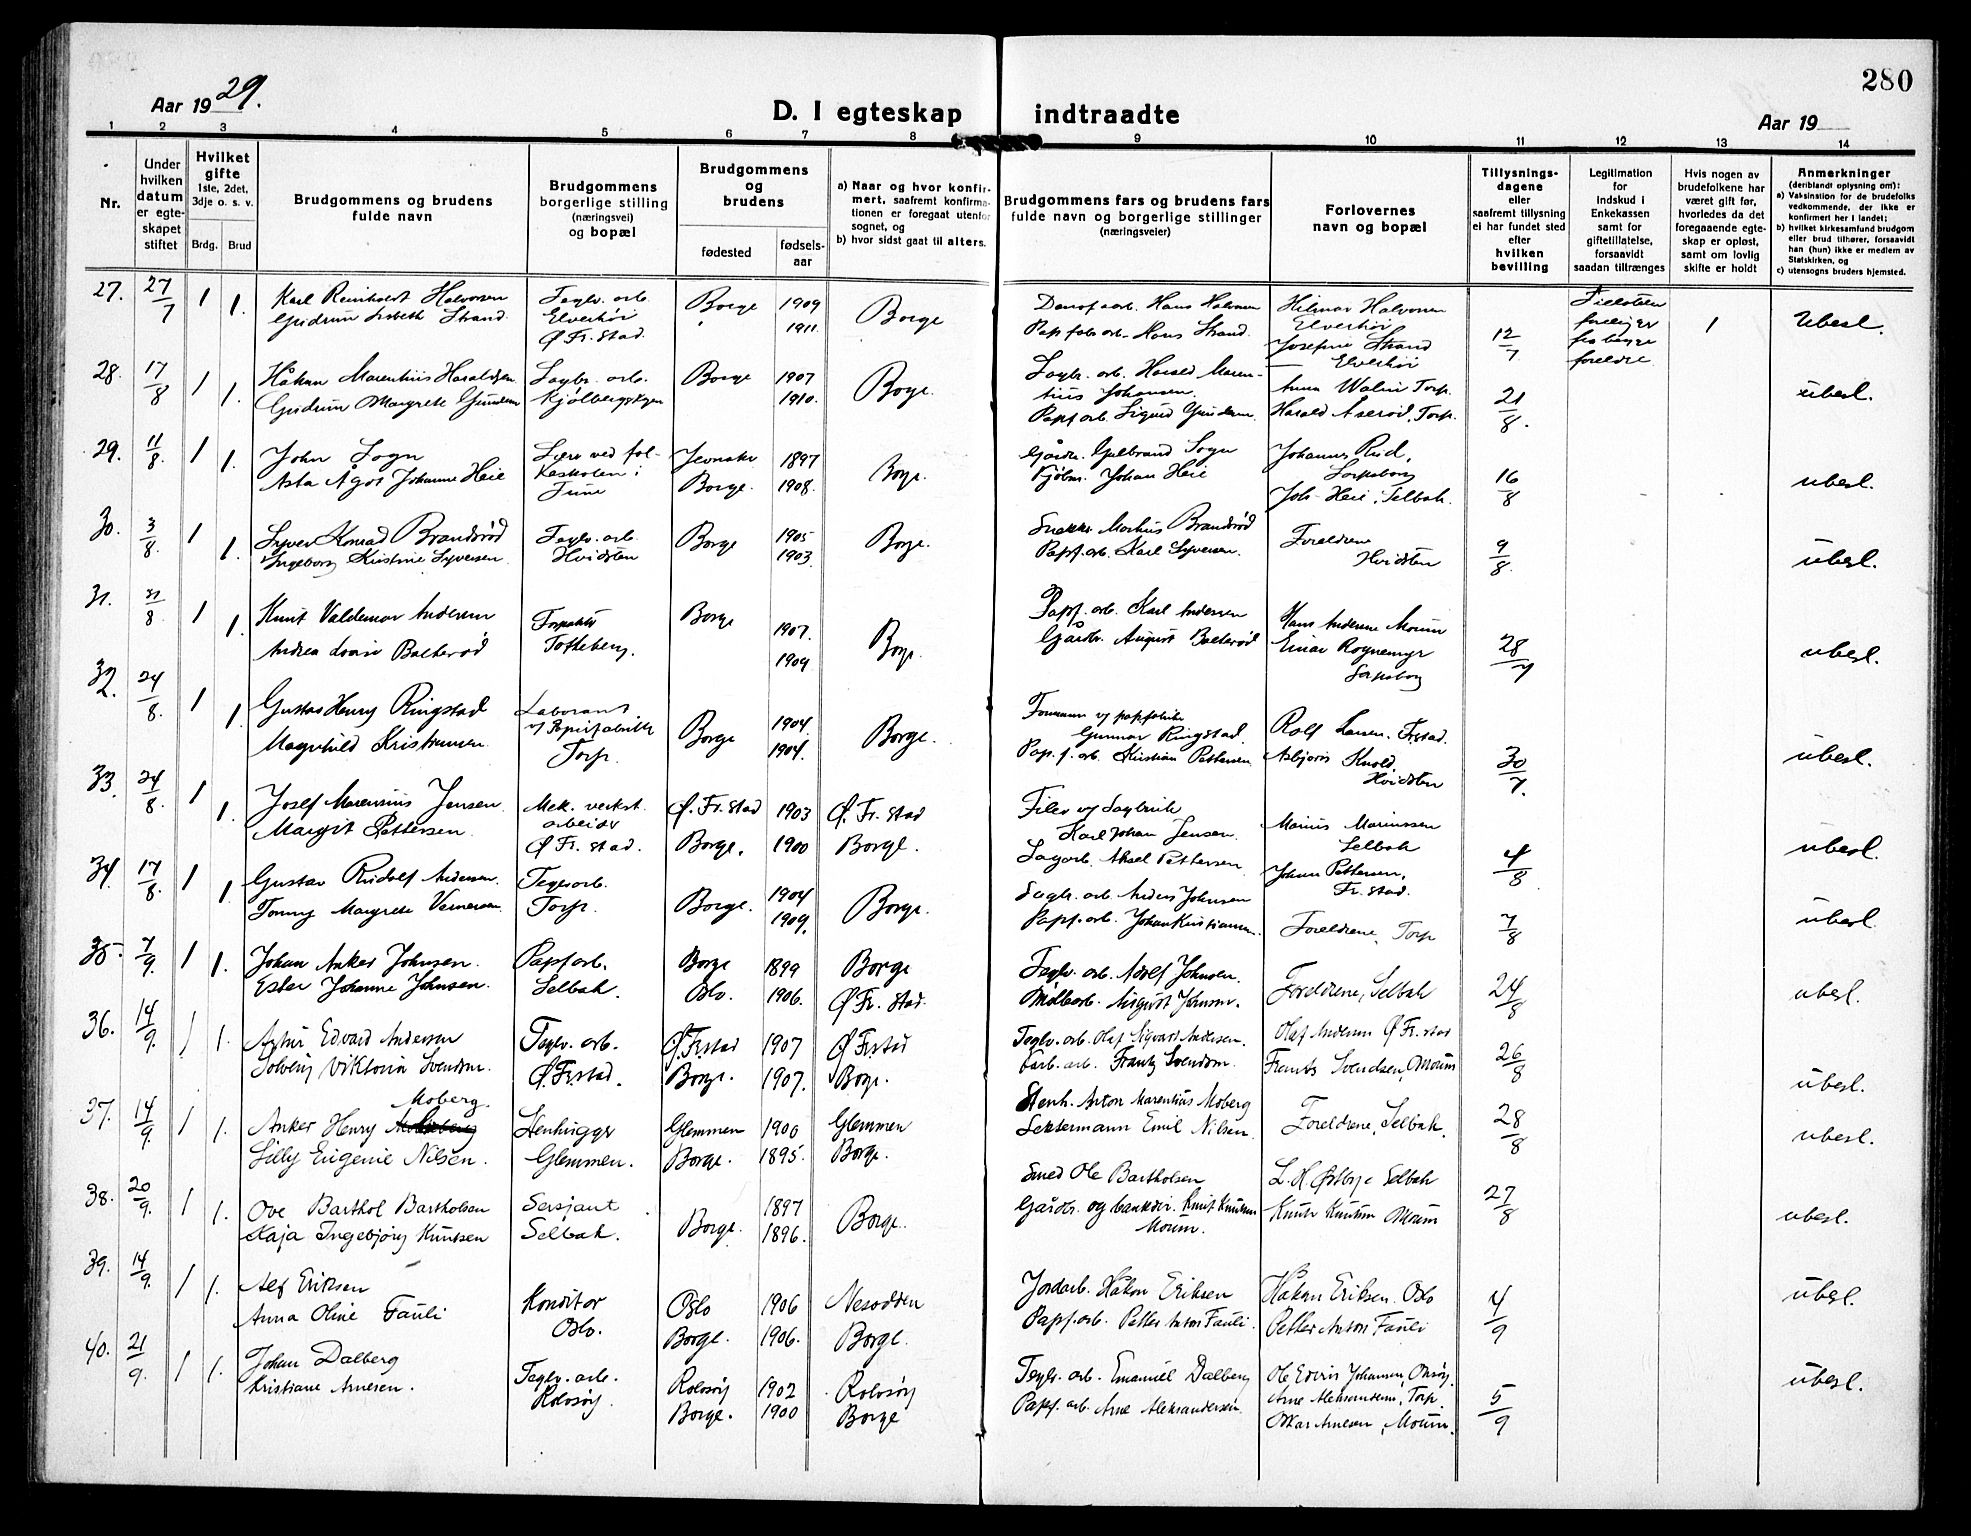 280
Aar 1929.
D. I egteskap indtraadte
Aar 19
1 2 3 4 5 6 7 8 9 10 11 12 13 14
Nr.
Under hvilken datum er egteskapet stiftet
Hvilket gifte
1ste, 2det, 3dje o. s. v.
Brdg. Brud
Brudgommens og brudens fulde navn
Brudgommens borgerlige stilling (næringsvei) og bopæl
Brudgommens og brudens
fødested fødselsaar
a) Naar og hvor konfirmert, saafremt konfirmationen er foregaat utenfor sognet, og
b) hvor sidst gaat til alters.
Brudgommens fars og brudens fars fulde navn og borgerlige stillinger (næringsveier)
Forlovernes navn og bopæl
Tillysningsdagene eller saafremt tillysning ei har fundet sted efter hvilken bevilling
Legitimation for Indskud i Enkekassen samt for giftetillatelse, forsaavidt saadan tiltrænges
Hvis nogen av brudefolkene har været gift før, hvorledes da det foregaaende egteskap er opløst, samt om lovlig skifte er holdt
Anmerkninger
(deriblandt oplysning om):
a) Vaksination for de brudefolks vedkommende, der ikke er konfirmert her i landet;
b) hvilket kirkesamfund brudgom eller brud tilhører, forsaavidt han (hun) ikke er medlem av Statskirken, og
c) utensogns bruders hjemsted.
27. 27/7 1 1. Karl Reinholdt Halvorsen Teglv. arb. Borge 1909 Borge Hans Halvorsen Hilmar Halvorsen 12/7 1 Ubesl.
Gudrun Lisbeth Strand Elverhöi 1911. Papfabr. arb. Hans Strand Elverhöi
Ø Fr. stad. Josefine Strand
Elverhöi
28. 17/8 1 1. Håkon Marentius Haraldsen Sagbr. arb. Borge 1907 Borge. Sagbr. arb. Harald Marentius Johansen. Torp. 21/8. ubesl.
Gudrun Margrete Gundersen 1910. Papf arb Sigurd Gundersen Harald Torp.
29. 11/8. 1 1. John Sogn Lærer ved folkeskolen i Tune Jevnaker 1897 Borge. Gudbrand Sogn Johannes Rud, 16/8 ubesl.
Asta Ågot Johanne Heie Borge. 1908. Johan Heie Sarpsborg
Joh. Heie, Selbak.
30. 3/8. 1 1. Syver Konrad Brandsrød Teglv. arb. Borge 1905 Borge. Markus Brandsrød Foreldrene 9/8. ubesl.
Ingeborg Kristine Syversen Hvidsten 1903. Papf. arb. Karl Syversen. Hvidsten
31. 31/8 1 1. Knut Valdemar Andersen Borge 1907. Borge. Papf. arb. Karl Andersen Hans Andersen Moum 28/7 ubesl.
Andrea Lovise Balterød Totheberg. 1909 Gårdbr. August Balterød Einar Rognemyr
Sarpsborg
32. 24/8. 1 1. Gustav Henry Ringstad Laborant Borge 1904. Borge. Formann v/ papfabrik Rolf Larsen. Frstad. 30/7. ubesl.
Magnhild Kristiansen v/ Papirfabrikk 1904. Gunnar Ringstad. Asbjørn Knold,
Torp. Pap. f. arb. Kristian Pettersen Hvidsten
33. 24/8. 1 1. Josef Marensius Jensen Mek. verkst. Ø. Fr. stad 1903 Ø. Fr. stad Filer v/ Sagbruk Marius Marinussen 4/8 ubesl.
Margit Pettersen. arbeider Borge. 1900 Borge. Karl Johan Jensen. Selbak
Ø Fr. stad. Sagarb. Aksel Pettersen Johan Pettersen,
Fr. stad.
34. 17/8. 1 1. Gustav Rudolf Andersen. Teglv. arb. Borge. 1904 Borge. Sagbr. arb Anders Johnsen 7/8 ubesl.
Tommy Margrete Vernersen. Torp. 1909. Papf. arb. Johan Kristiansen. Foreldrene, Torp
35. 7/9. 1 1. Johan Anker Johnsen. Papf arb. Borge 1899 Borge Teglv. arb. Adolf Johnsen. Foreldrene, Selbak 24/8 ubesl.
Ester Johanne Johnsen. Selbak. Oslo. 1906. Ø Fr. stad. August Johnsen.
36. 14/9. 1 1. Artur Edvard Andersen Teglv. arb. Ø. Frstad 1907 Ø Frstad Teglv. arb. Olaf Sigvard Andersen. Olaf Andersen Ø Fr. stad 26/8 ubesl.
Solveig Viktoria Svendsen. Ø. Frstad. Borge. 1907. Borge. Frantz Svendsen. Frants Svendsen, Moum
Moberg.
37. 14/9. 1 1. Anker Henry Stenhugger Glemmen 1900 Glemmen Stenh. Anton Marentius Moberg Foreldrene, Selbak. 28/8 ubesl.
Lilly Eugenie Nilsen. Glemmen. Borge. 1895. Borge. Lektermann Emil Nilsen.
38. 20/9. 1 1. Ove Barthol Bartholsen Sersjant Borge. 1897 Borge. Smed Ole Bartholsen L. H. Østbye Selbak 27/8 ubesl.
Kaja Ingebjørg Knutsen Selbak. 1896. Gårdbr. og bankdir. Knut Knutsen Knut Knutsen Moum
Moum.
39. 14/9. 1 1. Alf Eriksen Konditor Oslo 1906 Nesodden Jordarb. Håkon Eriksen Håkon Eriksen. Oslo 4/9 ubesl.
Anna Oline Fauli Oslo. Borge. 1906. Borge. Papf. arb. Petter Anton Fauli. Petter Anton Fauli
40. 21/9. 1 1. Johan Dalberg Teglv. arb. Rolvsöy 1902 Rolvsöy Teglv. arb. Emanuel Dalberg Ole Edvin Johansen, Onsöy. 5/9 ubesl.
Kristiane Arnesen. Rolvsöy. Borge. 1900 Borge Papf. arb. Arne Aleksandersen. Arne Aleksandersen, Torp
Oskar Arnesen, Moum.